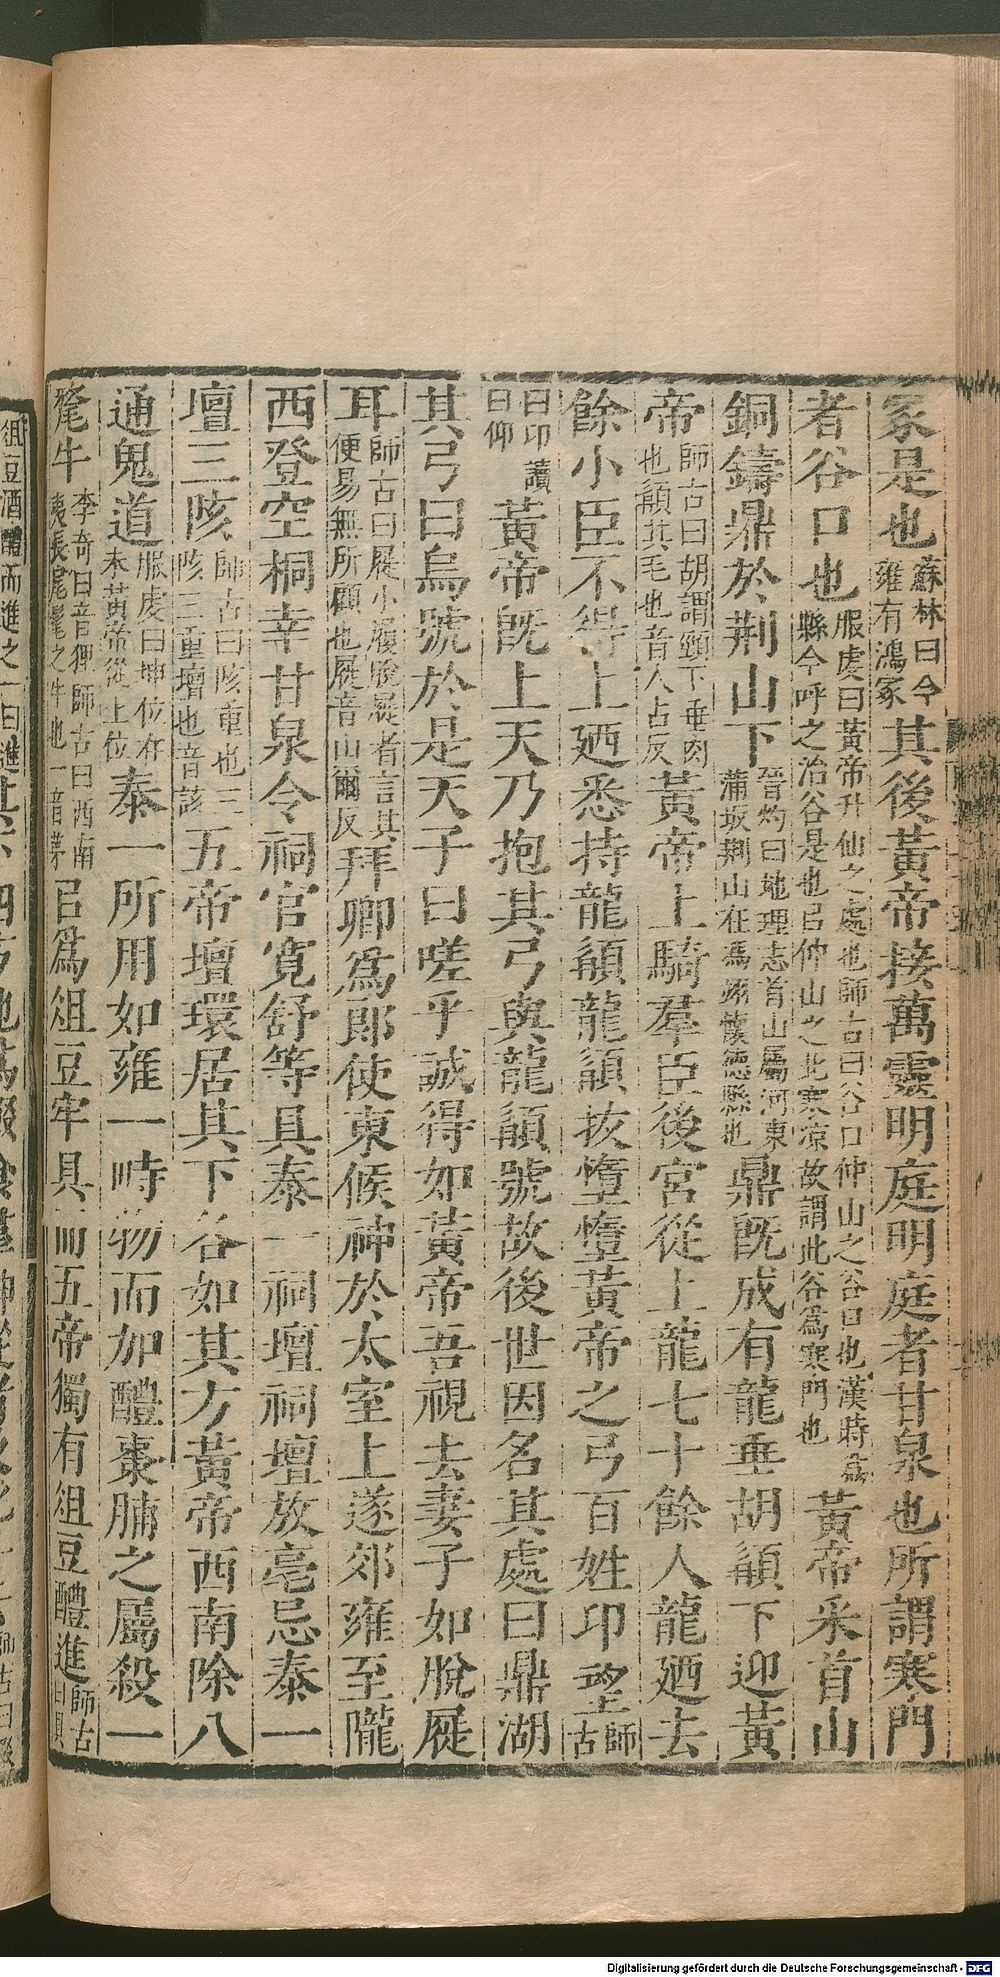 冢是也蘇林曰今雍有鴻冢其後黃帝接萬靈明庭明庭者甘泉也所謂寒門
者谷口也服虔曰黃帝升仙之處也師古曰谷口仲山之谷口也漢時爲縣今呼之治谷是也㠯仲山之北寒凉故謂此谷爲寒門也黃帝采首山
銅鑄鼎於荆山下晉灼曰地理志首山屬河東蒲坂荆山在馮翊懷德縣也鼎旣成有龍垂胡䫇下迎黃
帝師古曰胡謂頸下垂肉也䫇其毛也音人占反黃帝上騎羣臣後宮從上龍七十餘人龍廼去
餘小臣不得上廼悉持龍䫇龍䫇拔墮墮黃帝之弓百姓卬望師古
曰卬讀曰仰黃帝旣上天乃抱其弓與龍䫇號故後世因名其處曰鼎湖
其弓曰烏號於是天子曰嗟乎誠得如黃帝吾視去妻子如脫屣
耳師古曰屣小履脫屣者言其便易無所顧也屣音山爾反拜卿爲郎使東候神於太室上遂郊雍至隴
西登空桐幸甘泉令祠官寬舒等具泰一祠壇祠壇放亳忌泰一
壇三陔師古曰陔重也三陔三重壇也音該五帝壇環居其下各如其方黃帝西南除八
通鬼道服虔曰坤位在未黃帝從土位泰一所用如雍一畤物而加醴棗脯之屬殺一
氂牛李奇曰音貍師古曰西南夷長尾髦之牛也一音茅㠯爲俎豆牢具而五帝獨有俎豆醴進師古曰具
俎豆酒醴而進之一曰進
Digitalisierung gefördert durch die Deutsche Forschungsgemeinschaft - DFG